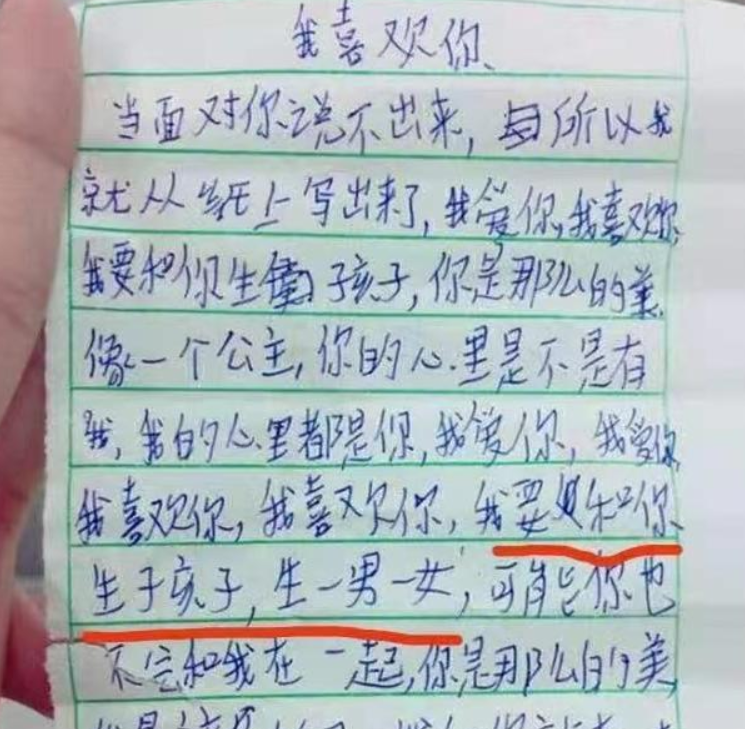 我喜欢你
当面对你说不出来,所以我
就从纸上写出来了,我爱你,我喜欢你,
我要和你生子孩子,你是那么的美,
像一个公主,你的心里是不是有
我,我的心里都是你,我爱你,我爱你,
我喜欢你,我喜欢你,我要和你
生子孩子,生一男一女,可能你也
不会和我在一起,你是那么的美,